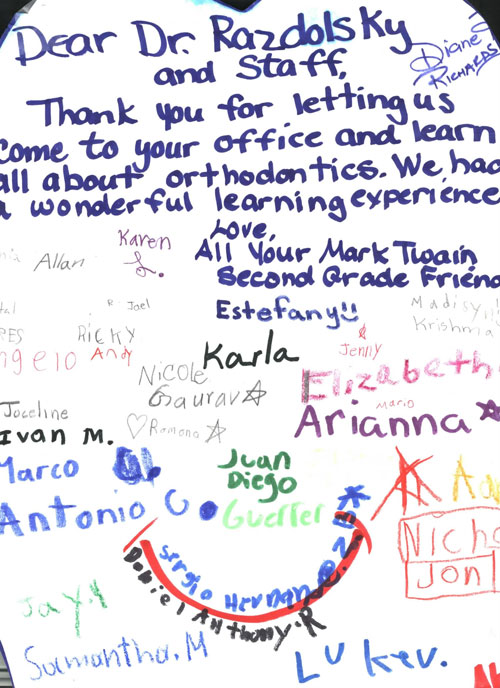 Dear Dr. Razdolsky
and Staff,
Diane
RICHARDS
Thank you for letting us
come to your office and learn
all about orthodontics. We had
a wonderful learning experience
Love,
All Your Mark Twain
Second Grade Friend
Karen
L.
Allan
R. Joel
Estefany
Madisyn
Krishma
RICKY
Andy
ngelo
Karla
Jenny
Nicole
Elizabeth
Gaurav
Mario
Joceline
Arianna
Ivan M.
Romona
Marco
Juan
Diego
Antonio C
Gueffer
Nicho
Jon
Sergio Hernandez
Daniel Anthony.R
Jay.Y
Samantha.M
Lukev.